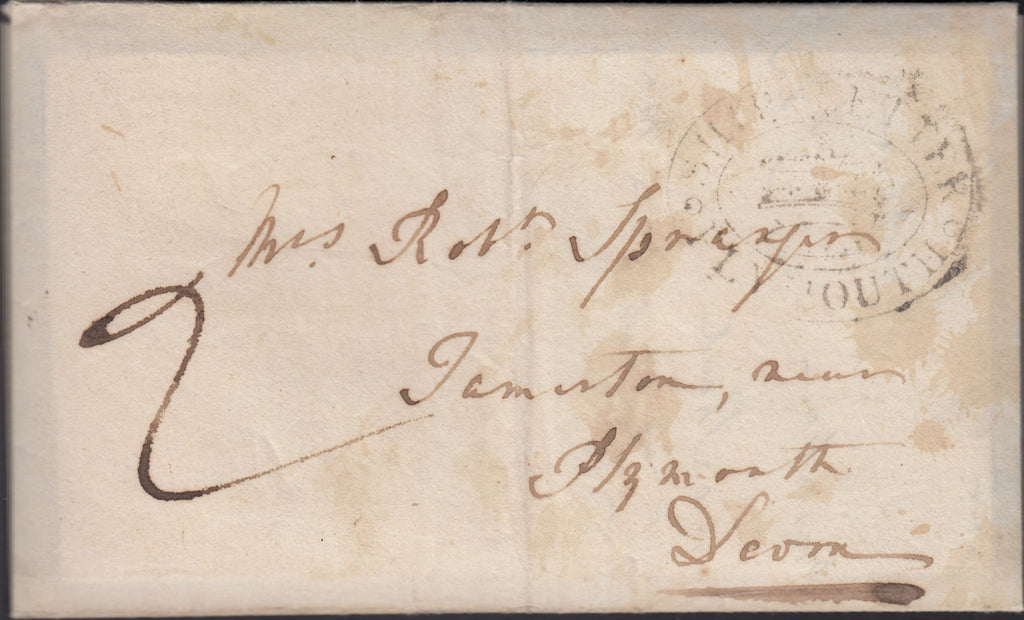 SHIP LETTER
PLYMOUTH
Mrs. Robt. Sprenger
2
Tamerton, near
Plymouth
Devon